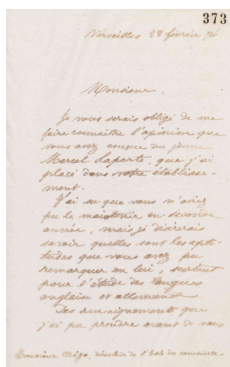 373
Versailles 28 février 76
Monsieur.
Je vous serais obligé de me
faire connaître l'opinion que
vous avez conçue du jeune
Marcel Laporte, que j'ai
placé dans votre établisse-
ment.
J'ai su que vous n'aviez
pu le maintenir en seconde
année, mais je désirerais
savoir quelles sont les apti-
tudes que vous avez pu
remarquer en lui, surtout
pour l'étude des langues
anglaise et allemande.
Des renseignements que
j'ai pu prendre avant de vous
Monsieur directeur de l'école de commerce.